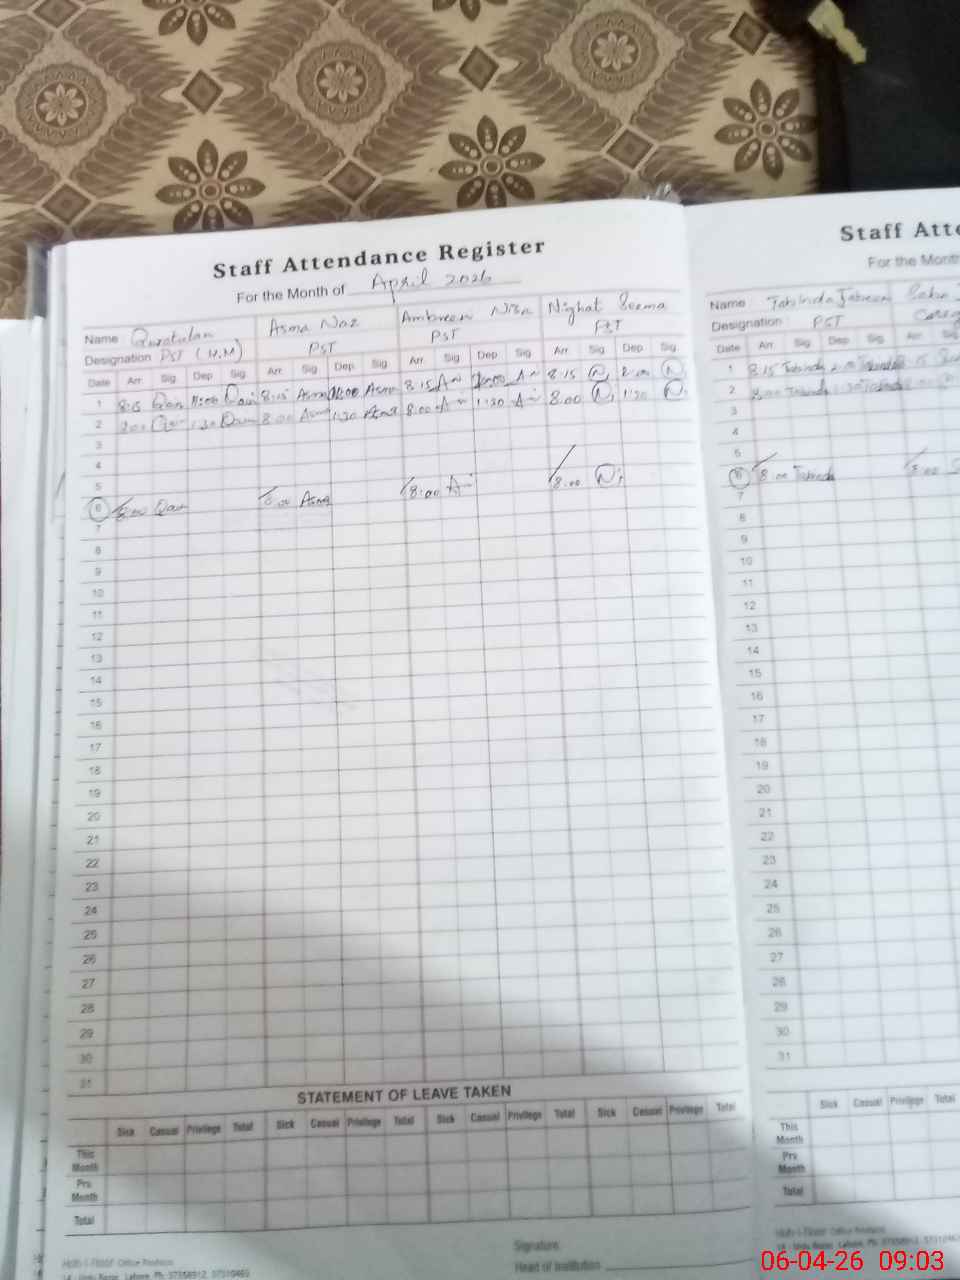 Staff Attendance Register
For the Month of April 2026
Name Quratulan Asma Naz Ambreen Nisa Nighat Seema
Designation PST (H.M) PST PST PST
Date Arr. Sig. Dep Sig. Arr. Sig. Dep Sig. Arr. Sig Dep Sig. Arr. Sig. Dep Sig.
1 8:15 11:00 8:15 Asma 11:00 Asma 8:15 8:15
2 8:00 1:30 8:00 Asma 1:30 Asma 8:00 1:30 8:00 1:30
3
4
5
6 8:00 8:00 Asma 8:00 8:00
7
8
9
10
11
12
13
14
15
16
17
18
19
20
21
22
23
24
25
26
27
28
29
30
31
STATEMENT OF LEAVE TAKEN
Sick Casual Privilege Total Sick Casual Privilege Total Sick Casual Privilege Total Sick Casual Privilege Total
This Month
Prs Month
Total
Signature
Head of Institution
Office Products
14 - Urdu Bazar, Lahore. Ph:
Staff Atte
For the Month
Name Tabinda Jabeen
Designation PST
Date Arr. Sig. Dep Sig. Arr. Sig.
1 8:15 Tabinda Tabinda
2 8:00 Tabinda 1:30 Tabinda
3
4
5
6 8:00 Tabinda 8:00
7
8
9
10
11
12
13
14
15
16
17
18
19
20
21
22
23
24
25
26
27
28
29
30
31
Sick Casual Privilege Total
This Month
Prs Month
Total
Office Products
14 - Urdu Bazar, Lahore. Ph:
06-04-26 09:03